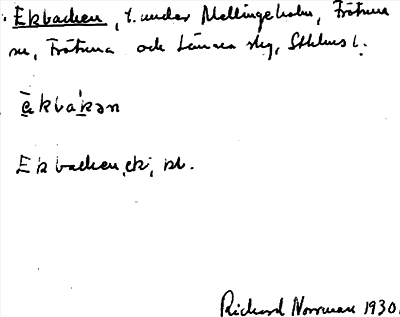 Ekbacken, t. under Mellingeholm, Frötuna
sn, Frötuna och Länna skg, Sthlms l.
ekbakən
Ekbacken, ek, bl.
Rickard Norrman 1930.